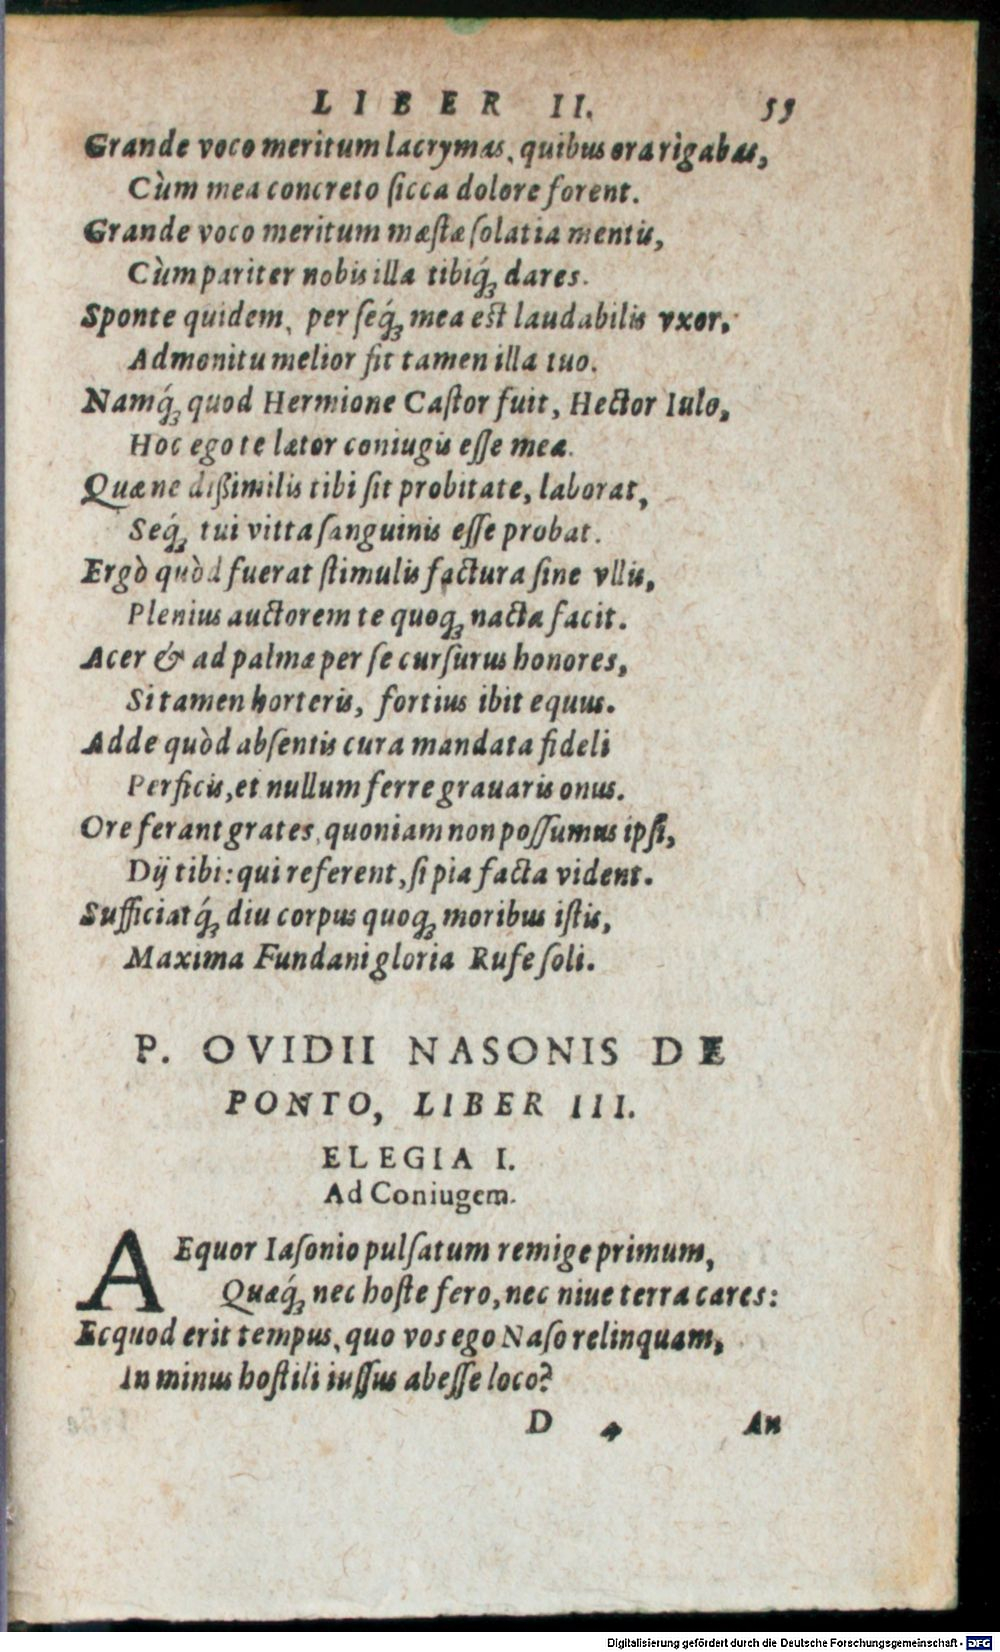 LIBER II. 55
Grande voco meritum lacrymas, quibus ora rìgabas,
Cùm mea concreto ſicca dolore forent.
Grande voco meritum mæſtæ ſolatia mentis,
Cùm pariter nobis illa tibiq́ꝫ dares.
Sponte quidem, per ſeq́ꝫ mea est laudabilis vxor,
Admonitu melior fit tamen illa tuo.
Namq́ꝫ quod Hermione Caſtor fuit, Hector Iulo,
Hoc ego te lætor coniugis eſſe meæ.
Quæ ne dißimilis tibi ſit probitate, laborat,
Seq́ꝫ tui vitta ſanguinis eſſe probat.
Ergò quòd fuerat ſtimulis factura ſine vllis,
Plenius auctorem te quoqꝫ nacta facit.
Acer & ad palmæ per ſe curſurus honores,
Si tamen horteris, fortius ibit equus.
Adde quòd abſentis cura mandata fideli
Perficis, et nullum ferre grauaris onus.
O referant grates, quoniam non poſſumus ipſi,
Dij tibi: qui referent, ſi pia facta vident.
Sufficiatq́ꝫ diu corpus quoqꝫ moribus iſtis,
Maxima Fundani gloria Rufe ſoli.
P. OVIDII NASONIS DE
PONTO, LIBER III.
ELEGIA I.
Ad Coniugem.
AEquor Iaſonio pulſatum remige primum,
Quæq́ꝫ nec hoſte fero, nec niue terra cares:
Ecquod erit tempus, quo vos ego Naſo relinquam,
In minus hoſtili iuſſus abeſſe loco?
D An
Digitalisierung gefördert durch die Deutsche Forschungsgemeinschaft - DFG